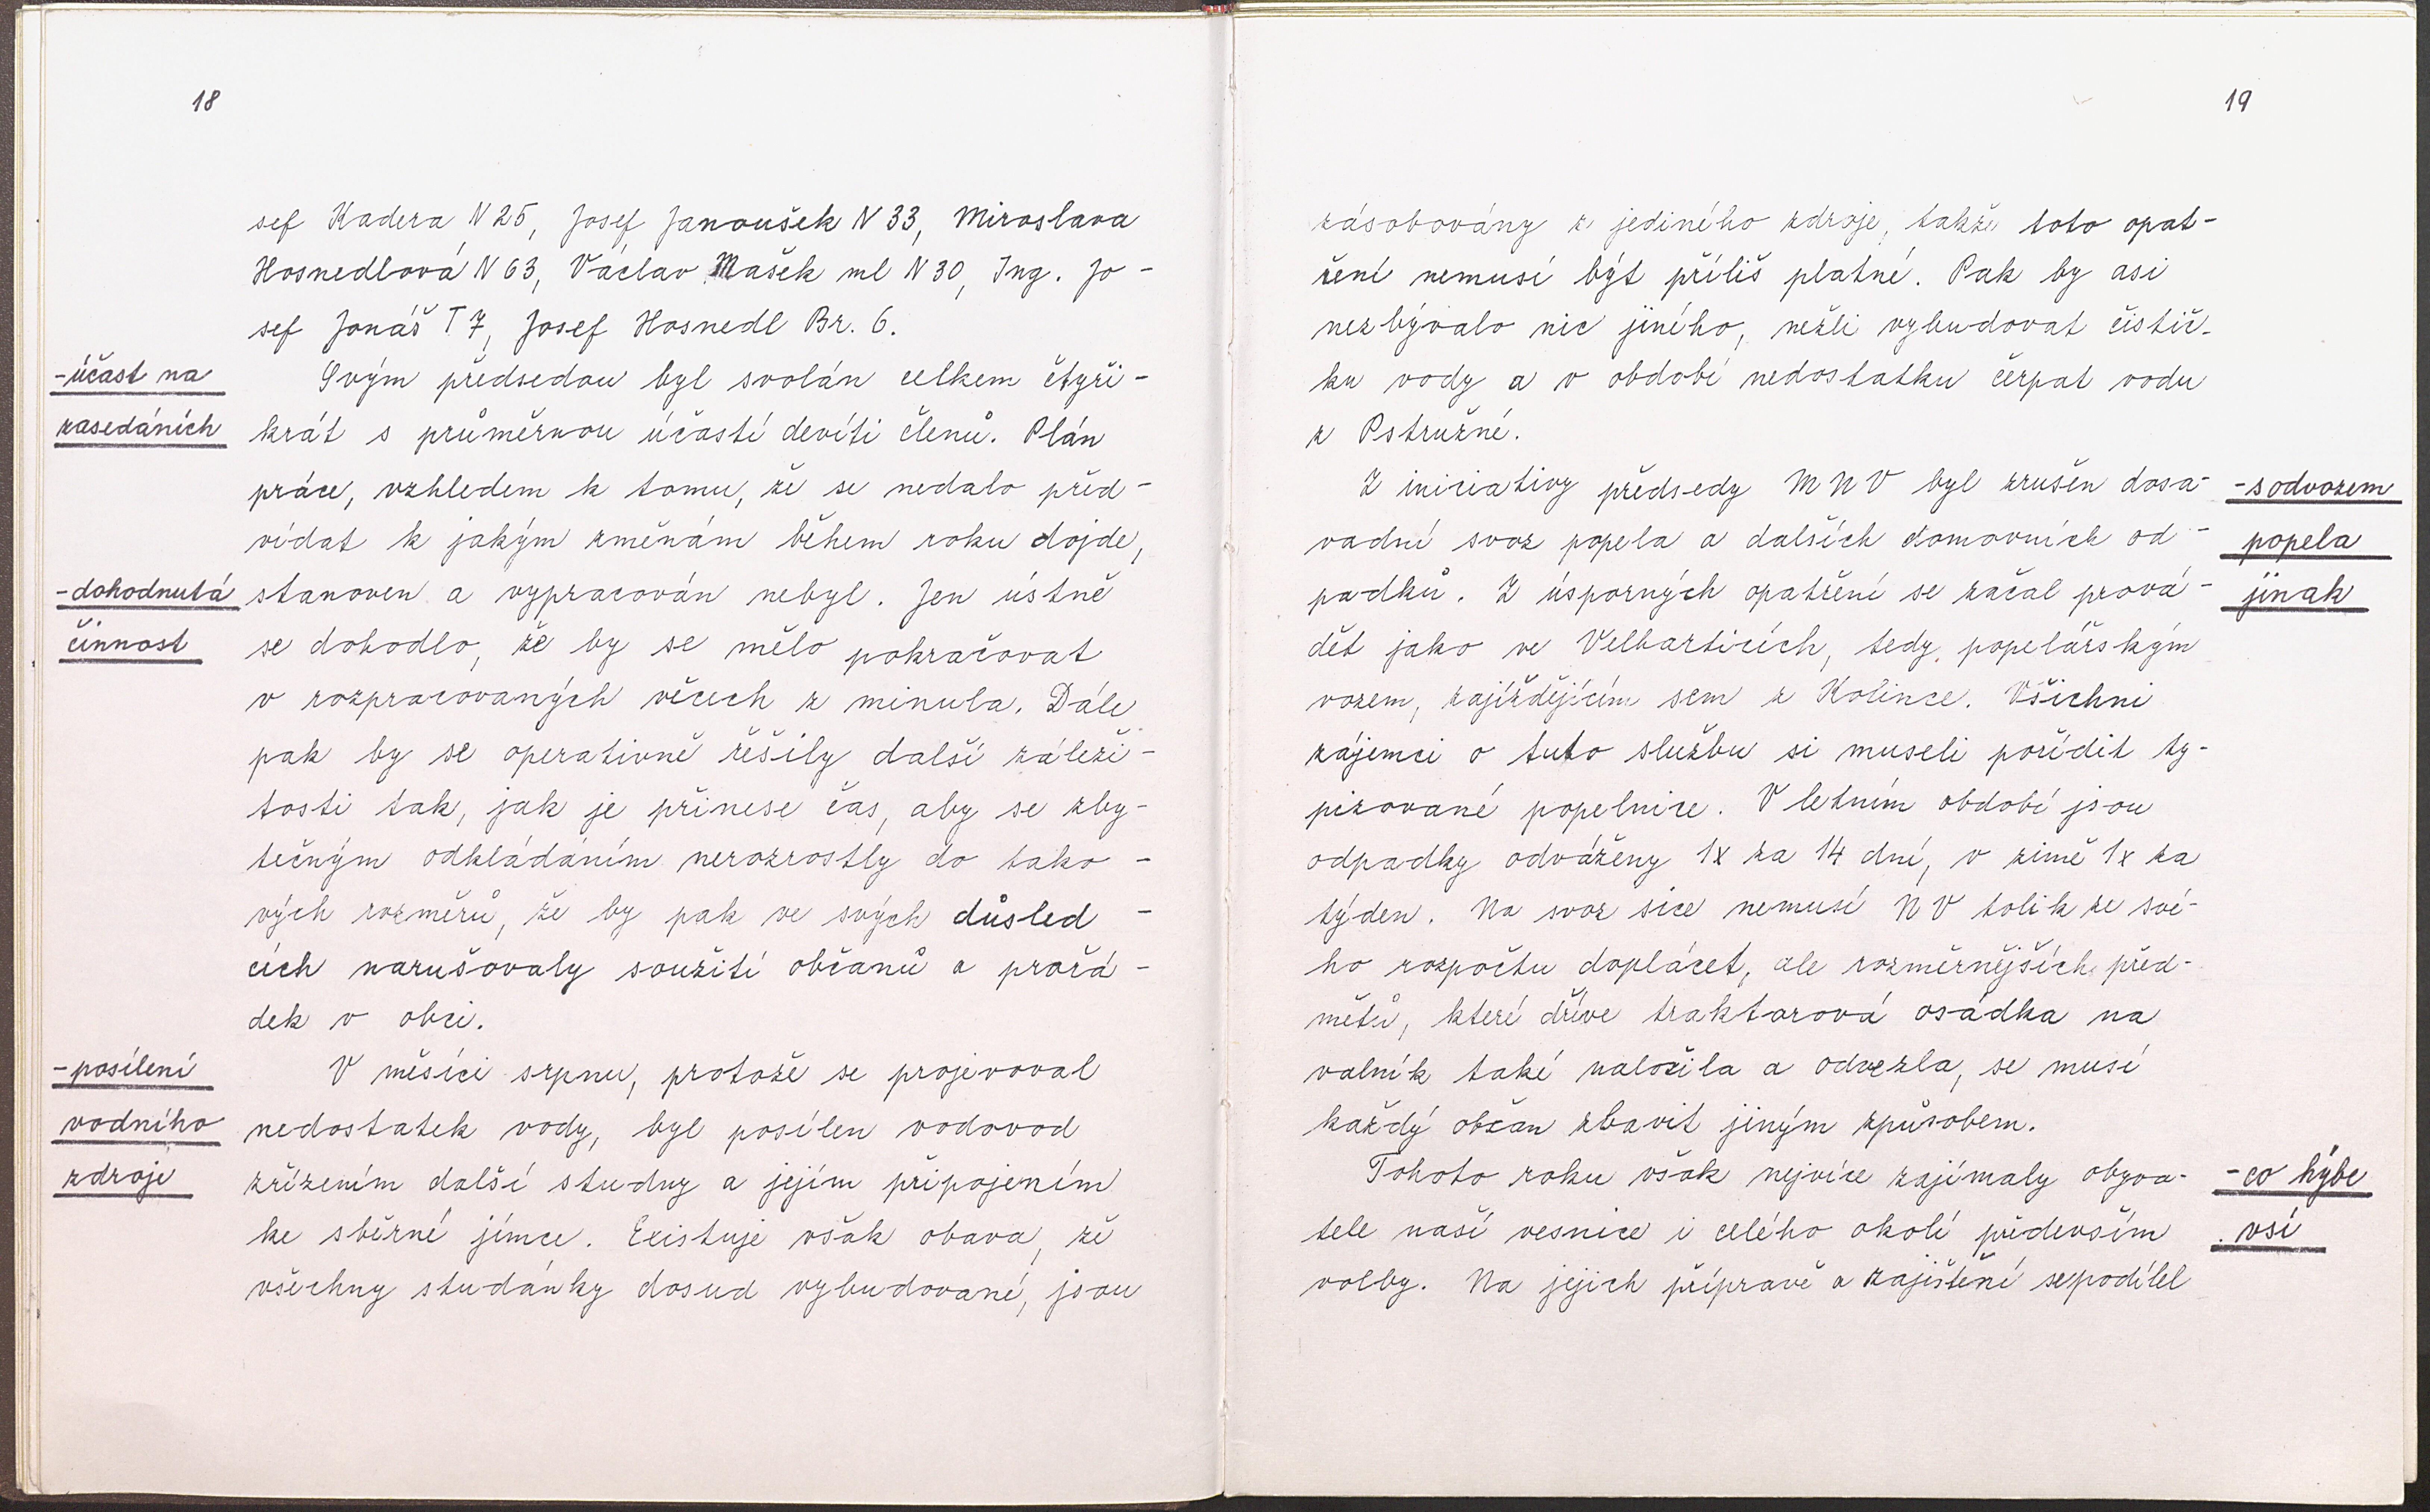 18
sef Kadera N 25, Josef Janoušek N 33, Miroslava
Hosnedlová N 63, Václav Mašek ml N 30, Ing. Jo-
sef Jonáš T 7, Josef Hosnedl Br. 6.
-účast na
zasedáních
Svým předsedou byl svolán celkem čtyři-
krát s průměrnou účastí devíti členů. Plán
práce, vzhledem k tomu, že se nedalo před-
vídat k jakým změnám během roku dojde,
-dohodnutá
činnost
stanoven a vypracován nebyl. Jen ústně
se dohodlo, že by se mělo pokračovat
v rozpracovaných věcech z minula. Dále
pak by se operativně řešily další záleži-
tosti tak, jak je přinese čas, aby se zby-
tečným odkládáním nerozrostly do tako-
vých rozměrů, že by pak ve svých důsled-
cích narušovaly soužití občanů a pořá-
dek v obci.
-posílení
vodního
zdroje
V měsíci srpnu, protože se projevoval
nedostatek vody, byl posílen vodovod
zřízením další studny a jejím připojením
ke sběrné jímce. Existuje však obava, že
všechny studánky dosud vybudované, jsou
19
zásobovány z jediného zdroje, takže toto opat-
ření nemusí být příliš platné. Pak by asi
nezbývalo nic jiného, nežli vybudovat čistič-
ku vody a v období nedostatku čerpat vodu
z Pstružné.
-s odvozem
popela
jinak
Z iniciativy předsedy MNV byl zrušen dosa-
vadní svoz popela a dalších domovních od-
padků. Z úsporných opatření se začal prová-
dět jako ve Velharticích, tedy popelářským
vozem, zajíždějícím sem z Kolince. Všichni
zájemci o tuto službu si museli pořídit ty-
pizované popelnice. V letním období jsou
odpadky odváženy 1x za 14 dní, v zimě 1x za
týden. Na svoz sice nemusí NV tolik ze své-
ho rozpočtu doplácet, ale rozměrnějších před-
mětů, které dříve traktorová osádka na
valník také naložila a odvezla, se musí
každý občan zbavit jiným způsobem.
-co hýbe
vsí
Tohoto roku však nejvíce zajímaly obyva-
tele naší vesnice i celého okolí především
volby. Na jejich přípravě a zajištění se podílel